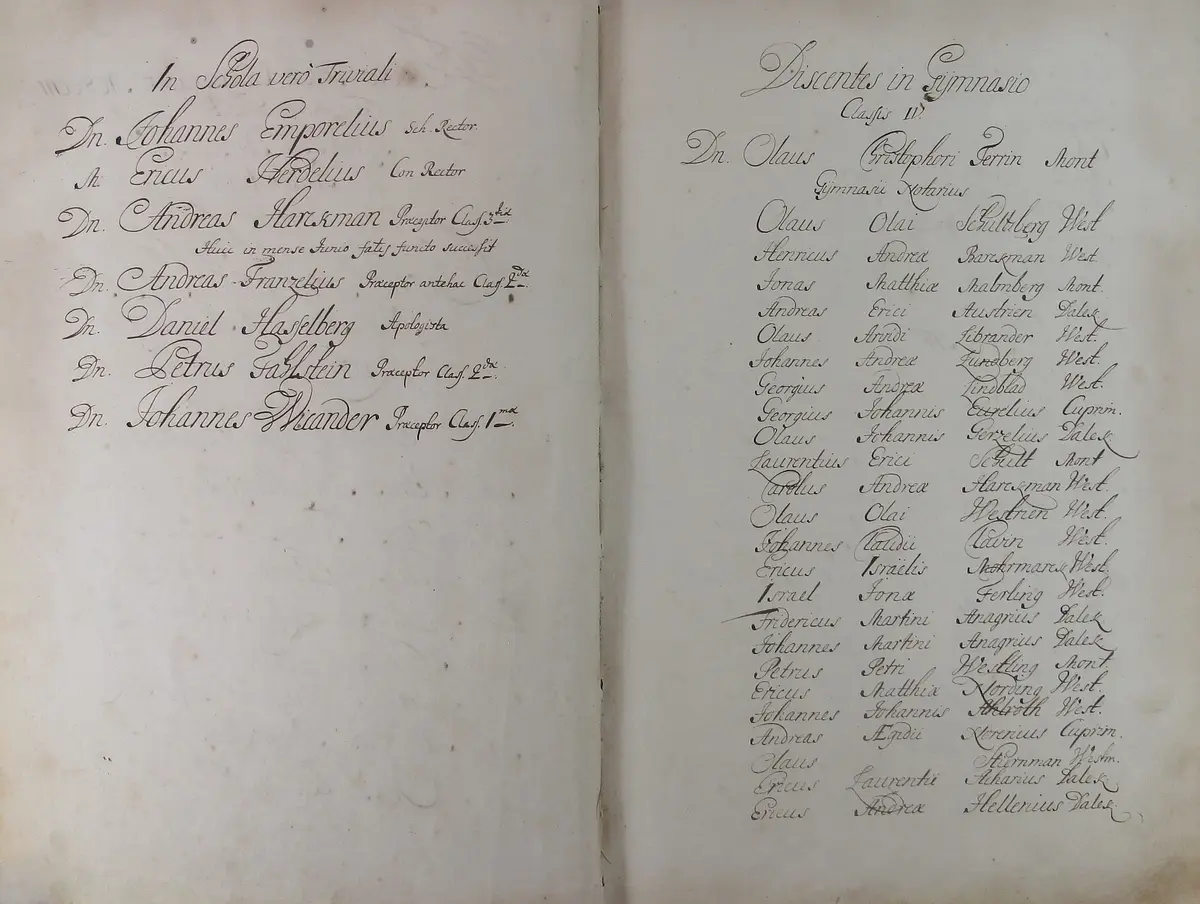 In Schola verò Triviali
Dn. Johannes Emporelius Sch. Rector.
M. Ericus Herdelius Con Rector
Dn. Andreas Harckman Præceptor Class. 3tiæ
Huic in mense Junio fatis functo successit
Dn. Andreas Franzelius Præceptor antehac Class. 2dæ
Dn. Daniel Hasselberg Apologista
Dn. Petrus Fahlstein Præceptor Class. 2dæ
Dn. Johannes Wicander Præceptor Class. 1mæ
Discentes in Gymnasio
Classis
Dn. Olaus Christophori Ferrin Mont
Gymnasii Notarius
Olaus Olai Schultzberg West
Henricus Andreæ Barckman West.
Jonas Matthiæ Malmberg Mont.
Andreas Erici Austrien Dalek
Olaus Arvidi Librander West.
Johannes Andreæ Lundberg West.
Georgius Andreæ Lindblad West.
Georgius Johannis Eurelius Cuprim.
Olaus Johannis Gerzelius Dalek
Laurentius Erici Schult Mont
Carolus Andreæ Harckman West.
Olaus Olai Westrien West.
Johannes Claudii Clavin West.
Ericus Israëlis West.
Israel Jonæ Ferling West.
Fridericus Martini Anagrius Dalek
Johannes Martini Anagrius Dalek
Petrus Petri Westling Mont.
Ericus Matthiæ Nording West.
Johannes Johannis Ahlroth West.
Andreas Ægidii Norenius Cuprim.
Olaus Stiernman Westm.
Ericus Laurentii Acharius Dalek
Ericus Andreæ Hellenius Dalek